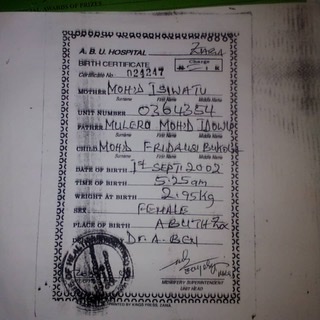 A.B.U. HOSPITAL
BIRTH CERTIFICATE
Certificate No. 024247
MOTHER MOHD ISIWATU
Surname First Name Middle Name
UNIT NUMBER 0364354
FATHER MULERO MOHD IDOWU
Surname First Name Middle Name
CHILD MOHD FRIDAUSI
Surname First Name Middle Name
DATE OF BIRTH SEPT 2002
TIME OF BIRTH 5:25am
WEIGHT AT BIRTH 2.95kg
FEMALE
PLACE OF BIRTH ABUTH
DR. A. BEN
MIDWIFERY SUPERINTENDENT